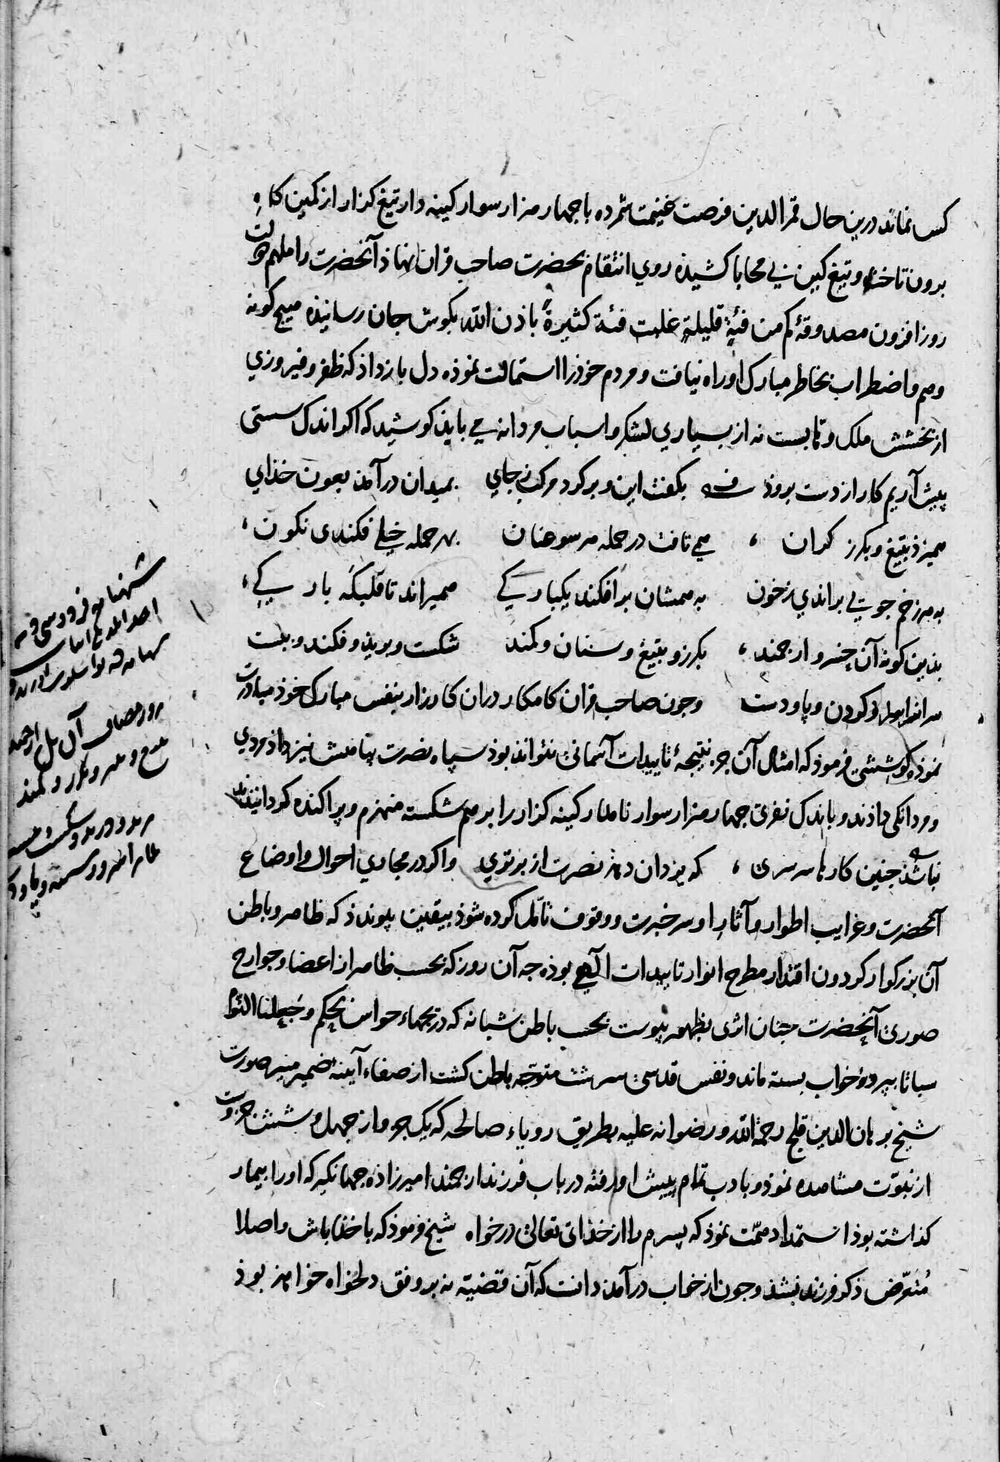 کس نماند درین حال قمرالدین فرصت غنیمت شمرده با چهار هزار سوار کینه دار تیغ گزار از کمین کاه
برون تاخته و تیغ کین بی محابا کشیده روی انتقام بحضرت صاحب قران نهاذ آنحضرت را ملهم دولت
روز افزون مصدوقهٔ کم من فئة قلیلة غلبت فئة کثیرة باذن الله بکوش جان رسانیذه هیچ کونه
وهم و اضطراب بخاطر مبارک او راه نیافت و مردم خوذ را استمالت نموذه دل باز داذ که ظفر و فیروزی
از بخشش ملک وهابست نه از بسیاری لشکر و اسباب مردانه می بایذ کوشید که اکر اندک سستی
پیش آریم کار از دست بروذ بکفت این و بر کرد مرکب ز جای بمیدان درآمذ بعون خذای
همیزذ بتیغ و بکرز کران همی تافت در حمله هر سو عنان بهر حمله خیلی فکندی نکون
بهر زخم جویی براندی ز خون بهمشان برافکند یکبارکی همیراند تا قلبکه بارکی
بذین کونه آن خسرو ارجمند بکرز و بتیغ و سنان و کمند شکست و بریذ و فکند و ببست
سرانرا سر و کردن و پا و دست وچون صاحب قران کامکار دران کارزار بنفس مبارک خوذ مبادرت
نموذه کوششی فرموذ که امثال آن جز نتیجهٔ تاییدات آسمانی نتواند بوذ سپاه نصرت پناهش نیز داذ مردی
و مردانکی داذند و باندک نفری چهار هزار سوار نامدار کینه کزار را برهم شکسته منهزم و پراکنده کردانیذند
نباشذ چنین کارها سرسری که یزدان دهذ نصرت از برتری واکر در مجاری احوال و اوضاع
آنحضرت و غرایب اطوار و آثار او سر خبرت و وقوف تأملی کرده شوذ بیقین پیوندذ که ظاهر و باطن
آن بزرکوار کردون اقتدار مطرح انوار تاییدات الهی بوذه چه آن روز که بحسب ظاهر از اعضا و جوارح
صوری آنحضرت چنان اثری بظهور پیوست بحسب باطن شبانه که دریچهاء حواس بحکم وجعلنا النوم
سباتا بپردهٔ خواب بسته ماند و نفس قدسی سرشت متوجه باطن کشت از صفاء آینهٔ ضمیر منیر صورت
شیخ برهان الدین قلیج رحمة الله و رضوانه علیه بطریق رویاء صالحه که یک جزو از چهل و شش جزوست
از نبوت مشاهده نموذ و بادب تمام پیش او رفته در باب فرزند ارجمند امیرزاذه جهانکیر که او را بیمار
کذاشته بوذ استمداد همت نموذ که پسرم را از خذای تعالی درخواه شیخ فرموذ که با خذا باش و اصلا
متعرض ذکر فرزند نشذ و چون از خواب درآمذ دانست که آن قضیه نه بر وفق دلخواه خواهذ بوذ
شهنامه فردوسی
بروز مصاف آن یل ارجمند
بتیغ و بخنجر بکرز و کمند
برید و درید و شکست و ببست
یلانرا سر و سینه و پا و دست